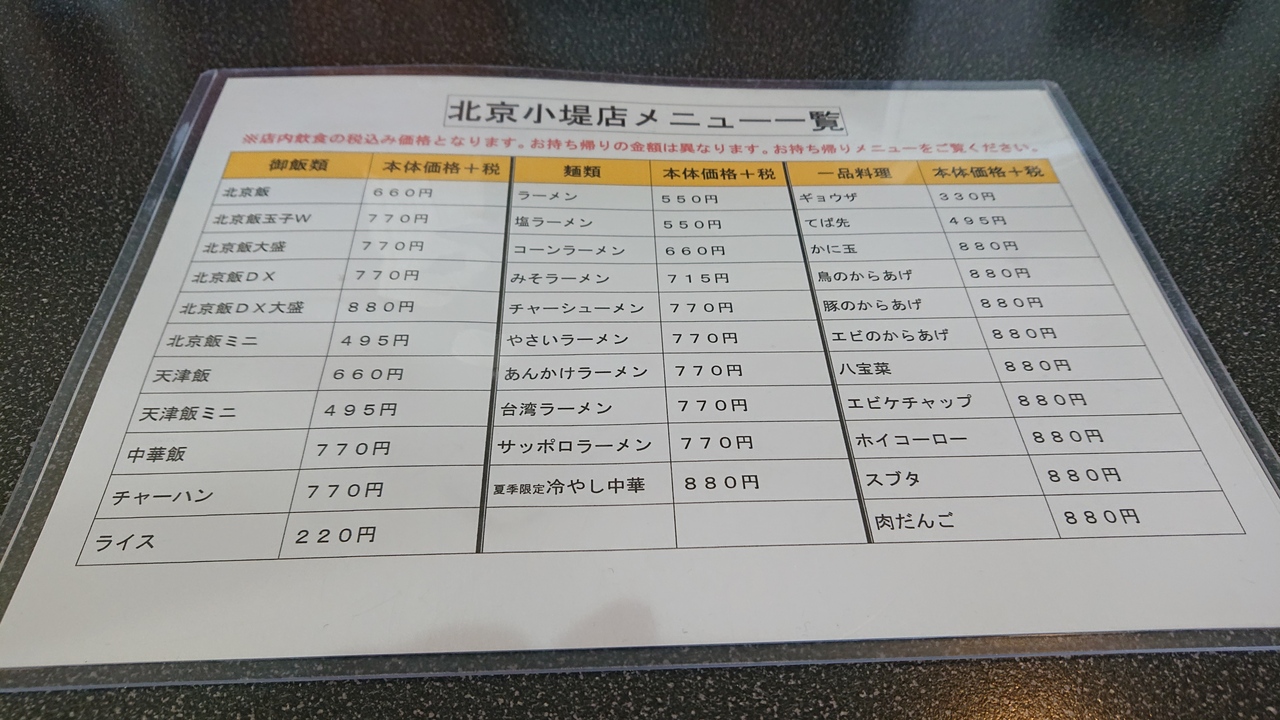 北京小堤店メニュー一覧
※店内飲食の税込み価格となります。お持ち帰りの金額は異なります。お持ち帰りメニューをご覧ください。
御飯類 本体価格＋税 麺類 本体価格＋税 一品料理 本体価格＋税
北京飯 ６６０円 ラーメン ５５０円 ギョウザ ３３０円
北京飯玉子Ｗ ７７０円 塩ラーメン ５５０円 てば先 ４９５円
北京飯大盛 ７７０円 コーンラーメン ６６０円 かに玉 ８８０円
北京飯ＤＸ ７７０円 みそラーメン ７１５円 鳥のからあげ ８８０円
北京飯ＤＸ大盛 ８８０円 チャーシューメン ７７０円 豚のからあげ ８８０円
北京飯ミニ ４９５円 やさいラーメン ７７０円 エビのからあげ ８８０円
天津飯 ６６０円 あんかけラーメン ７７０円 八宝菜 ８８０円
天津飯ミニ ４９５円 台湾ラーメン ７７０円 エビケチャップ ８８０円
中華飯 ７７０円 サッポロラーメン ７７０円 ホイコーロー ８８０円
チャーハン ７７０円 夏季限定冷やし中華 ８８０円 スブタ ８８０円
ライス ２２０円 肉だんご ８８０円